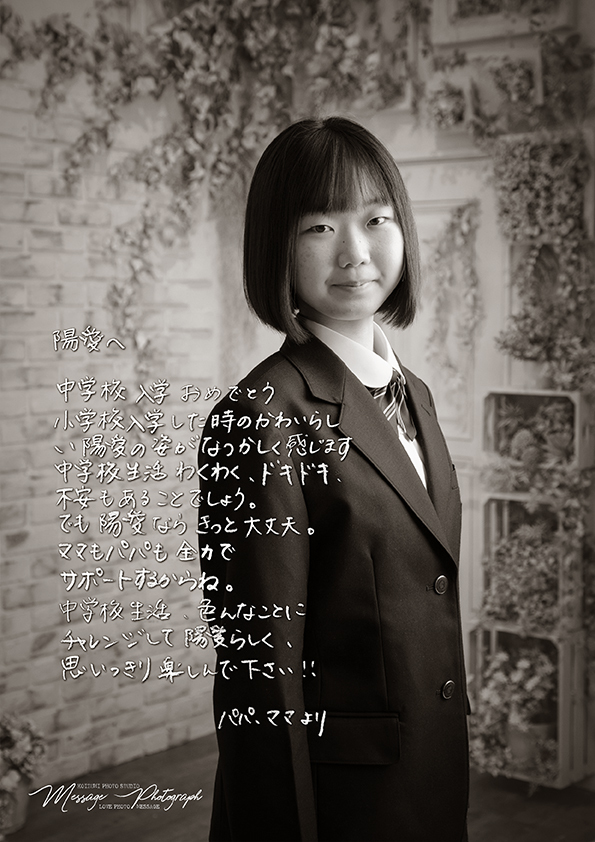 陽愛へ
中学校入学おめでとう
小学校入学した時のかわいらし
い陽愛の姿がなつかしく感じます
中学校生活わくわく、ドキドキ、
不安もあることでしょう。
でも陽愛ならきっと大丈夫。
ママもパパも全力で
サポートするからね。
中学校生活、色んなことに
チャレンジして陽愛らしく、
思いっきり楽しんで下さい!!
パパ、ママより
KOIZUMI PHOTO STUDIO
Message Photograph
LOVE PHOTO MESSAGE